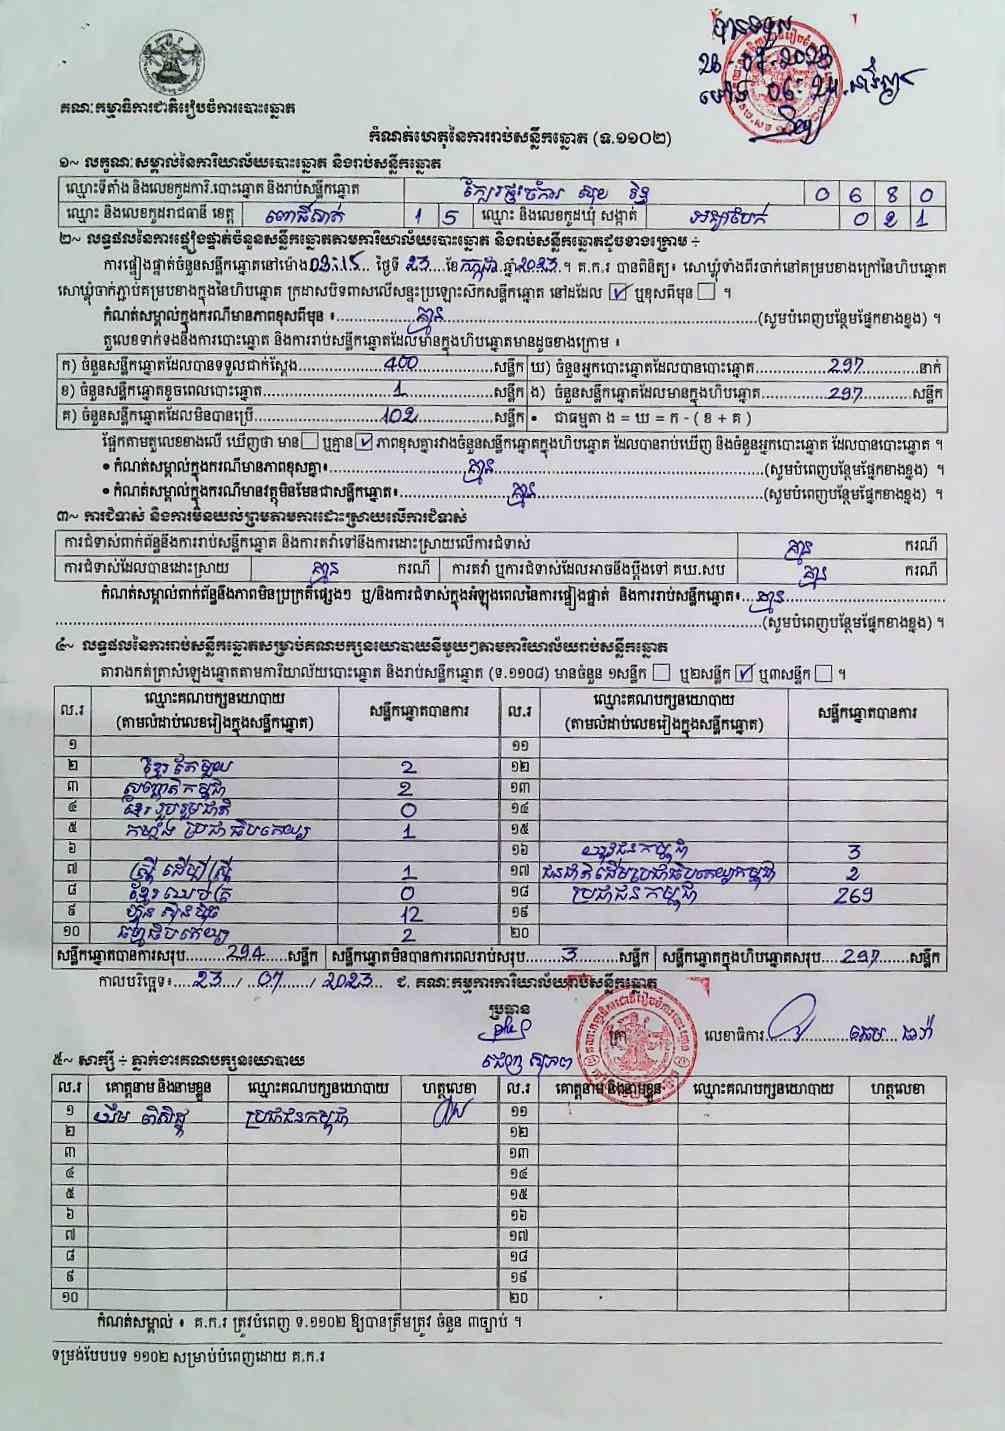 បានទទួល
គណៈកម្មាធិការជាតិរៀបចំការបោះឆ្នោត
កំណត់ហេតុនៃការរាប់សន្លឹកឆ្នោត (ទ.១១០២)
១~ លក្ខណៈសម្គាល់នៃការិយាល័យបោះឆ្នោត និងរាប់សន្លឹកឆ្នោត
ឈ្មោះទីតាំង និងលេខកូដការិ.បោះឆ្នោត និងរាប់សន្លឹកឆ្នោត 0 6 8 0
ឈ្មោះ និងលេខកូដរាជធានី ខេត្ត ពោធិ៍សាត់ 1 5 ឈ្មោះ និងលេខកូដឃុំ សង្កាត់ 0 2 1
២~ លទ្ធផលនៃការផ្ទៀងផ្ទាត់ចំនួនសន្លឹកឆ្នោតតាមការិយាល័យបោះឆ្នោត និងរាប់សន្លឹកឆ្នោតដូចខាងក្រោម ÷
ការផ្ទៀងផ្ទាត់ចំនួនសន្លឹកឆ្នោតនៅម៉ោង 03:15 ថ្ងៃទី 23 ខែ កក្កដា ឆ្នាំ 2023 ។ គ.ក.រ បានពិនិត្យ៖ សោឃ្លុំទាំងពីរចាក់នៅគម្របខាងក្រៅនៃហិបឆ្នោត
សោឃ្លុំចាក់ភ្ជាប់គម្របខាងក្នុងនៃហិបឆ្នោត ក្រដាសបិទពាសលើសន្ទះប្រឡោះស៊កសន្លឹកឆ្នោត នៅដដែល ☑ ឬខុសពីមុន ☐ ។
កំណត់សម្គាល់ក្នុងករណីមានភាពខុសពីមុន ៖ គ្មាន (សូមបំពេញបន្ថែមផ្នែកខាងខ្នង) ។
តួលេខទាក់ទងនឹងការបោះឆ្នោត និងការរាប់សន្លឹកឆ្នោតដែលមានក្នុងហិបឆ្នោតមានដូចខាងក្រោម ៖
ក) ចំនួនសន្លឹកឆ្នោតដែលបានទទួលជាក់ស្តែង 400 សន្លឹក ឃ) ចំនួនអ្នកបោះឆ្នោតដែលបានបោះឆ្នោត 297 នាក់
ខ) ចំនួនសន្លឹកឆ្នោតខូចពេលបោះឆ្នោត 1 សន្លឹក ង) ចំនួនសន្លឹកឆ្នោតដែលមានក្នុងហិបឆ្នោត 297 សន្លឹក
គ) ចំនួនសន្លឹកឆ្នោតដែលមិនបានប្រើ 102 សន្លឹក • ជាធម្មតា ង = ឃ = ក - ( ខ + គ )
ផ្អែកតាមតួលេខខាងលើ ឃើញថា មាន ☐ ឬគ្មាន ☑ ភាពខុសគ្នារវាងចំនួនសន្លឹកឆ្នោតក្នុងហិបឆ្នោត ដែលបានរាប់ឃើញ និងចំនួនអ្នកបោះឆ្នោត ដែលបានបោះឆ្នោត ។
• កំណត់សម្គាល់ក្នុងករណីមានភាពខុសគ្នា៖ គ្មាន (សូមបំពេញបន្ថែមផ្នែកខាងខ្នង) ។
• កំណត់សម្គាល់ក្នុងករណីមានវត្ថុមិនមែនជាសន្លឹកឆ្នោត៖ គ្មាន (សូមបំពេញបន្ថែមផ្នែកខាងខ្នង) ។
៣~ ការជំទាស់ និងការមិនយល់ព្រមតាមការដោះស្រាយលើការជំទាស់
ការជំទាស់ពាក់ព័ន្ធនឹងការរាប់សន្លឹកឆ្នោត និងការតវ៉ាទៅនឹងការដោះស្រាយលើការជំទាស់ គ្មាន ករណី
ការជំទាស់ដែលបានដោះស្រាយ គ្មាន ករណី ការតវ៉ា ឬការជំទាស់ដែលអាចនឹងប្តឹងទៅ គឃ.សប គ្មាន ករណី
កំណត់សម្គាល់ពាក់ព័ន្ធនឹងភាពមិនប្រក្រតីផ្សេងៗ ឬ/និងការជំទាស់ក្នុងអំឡុងពេលនៃការផ្ទៀងផ្ទាត់ និងការរាប់សន្លឹកឆ្នោត៖ គ្មាន
(សូមបំពេញបន្ថែមផ្នែកខាងខ្នង) ។
៤~ លទ្ធផលនៃការរាប់សន្លឹកឆ្នោតសម្រាប់គណបក្សនយោបាយនីមួយៗតាមការិយាល័យរាប់សន្លឹកឆ្នោត
តារាងកត់ត្រាសំឡេងឆ្នោតតាមការិយាល័យបោះឆ្នោត និងរាប់សន្លឹកឆ្នោត (ទ.១១០៨) មានចំនួន ១សន្លឹក ☐ ឬ២សន្លឹក ☑ ឬ៣សន្លឹក ☐ ។
ល.រ ឈ្មោះគណបក្សនយោបាយ (តាមលំដាប់លេខរៀងក្នុងសន្លឹកឆ្នោត) សន្លឹកឆ្នោតបានការ ល.រ ឈ្មោះគណបក្សនយោបាយ (តាមលំដាប់លេខរៀងក្នុងសន្លឹកឆ្នោត) សន្លឹកឆ្នោតបានការ
១ ១១
២ ខ្មែរតែមួយ 2 ១២
៣ សញ្ជាតិកម្ពុជា 2 ១៣
៤ ខ្មែររួបរួមជាតិ 0 ១៤
៥ កម្លាំងប្រជាធិបតេយ្យ 1 ១៥
៦ ១៦ យុវជនកម្ពុជា 3
៧ ស្ត្រីដើម្បីស្ត្រី 1 ១៧ ជនជាតិដើមប្រជាធិបតេយ្យកម្ពុជា 2
៨ ខ្មែរឈប់ក្រ 0 ១៨ ប្រជាជនកម្ពុជា 269
៩ ហ៊្វុនស៊ិនប៉ិច 12 ១៩
១០ ធម្មាធិបតេយ្យ 2 ២០
សន្លឹកឆ្នោតបានការសរុប 294 សន្លឹក សន្លឹកឆ្នោតមិនបានការពេលរាប់សរុប 3 សន្លឹក សន្លឹកឆ្នោតក្នុងហិបឆ្នោតសរុប 297 សន្លឹក
កាលបរិច្ឆេទ៖ 23 / 07 / 2023 ជ. គណៈកម្មការការិយាល័យរាប់សន្លឹកឆ្នោត
ប្រធាន
ត្រា លេខាធិការ
៥~ សាក្សី ÷ ភ្នាក់ងារគណបក្សនយោបាយ
ល.រ គោត្តនាម និងនាមខ្លួន ឈ្មោះគណបក្សនយោបាយ ហត្ថលេខា ល.រ គោត្តនាម និងនាមខ្លួន ឈ្មោះគណបក្សនយោបាយ ហត្ថលេខា
១ ប្រជាជនកម្ពុជា ១១
២ ១២
៣ ១៣
៤ ១៤
៥ ១៥
៦ ១៦
៧ ១៧
៨ ១៨
៩ ១៩
១០ ២០
កំណត់សម្គាល់ ៖ គ.ក.រ ត្រូវបំពេញ ទ.១១០២ ឱ្យបានត្រឹមត្រូវ ចំនួន ៣ច្បាប់ ។
ទម្រង់បែបបទ ១១០២ សម្រាប់បំពេញដោយ គ.ក.រ